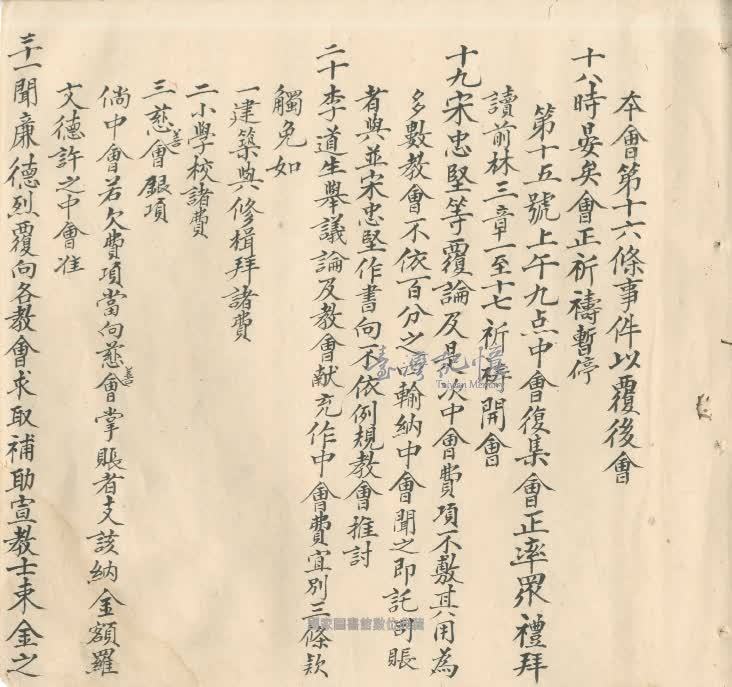 本會第十六條事件以覆後會
十八時晏矣會正祈禱暫停
第十五號上午九点中會復集會正率眾禮拜
讀前林三章一至十七祈禱開會
十九宋忠堅等覆論及是次中會費項不敷其用為
多數教會不依百分之 輪納中會聞之即託司賬
者與並宋忠堅作書向不依例規教會推討
二十李道生舉議論及教會献充作中會費宜別三條款
觸免如
一建築與修楫拜諸費
二小學校諸費
三慈善會銀項
倘中會若欠費項當向慈善會掌賬者支該納金額羅
文德許之中會准
三一聞廉德烈覆向各教會求取補助宣教士束金之
臺灣記憶
Taiwan Memory
國家圖書館數位典藏